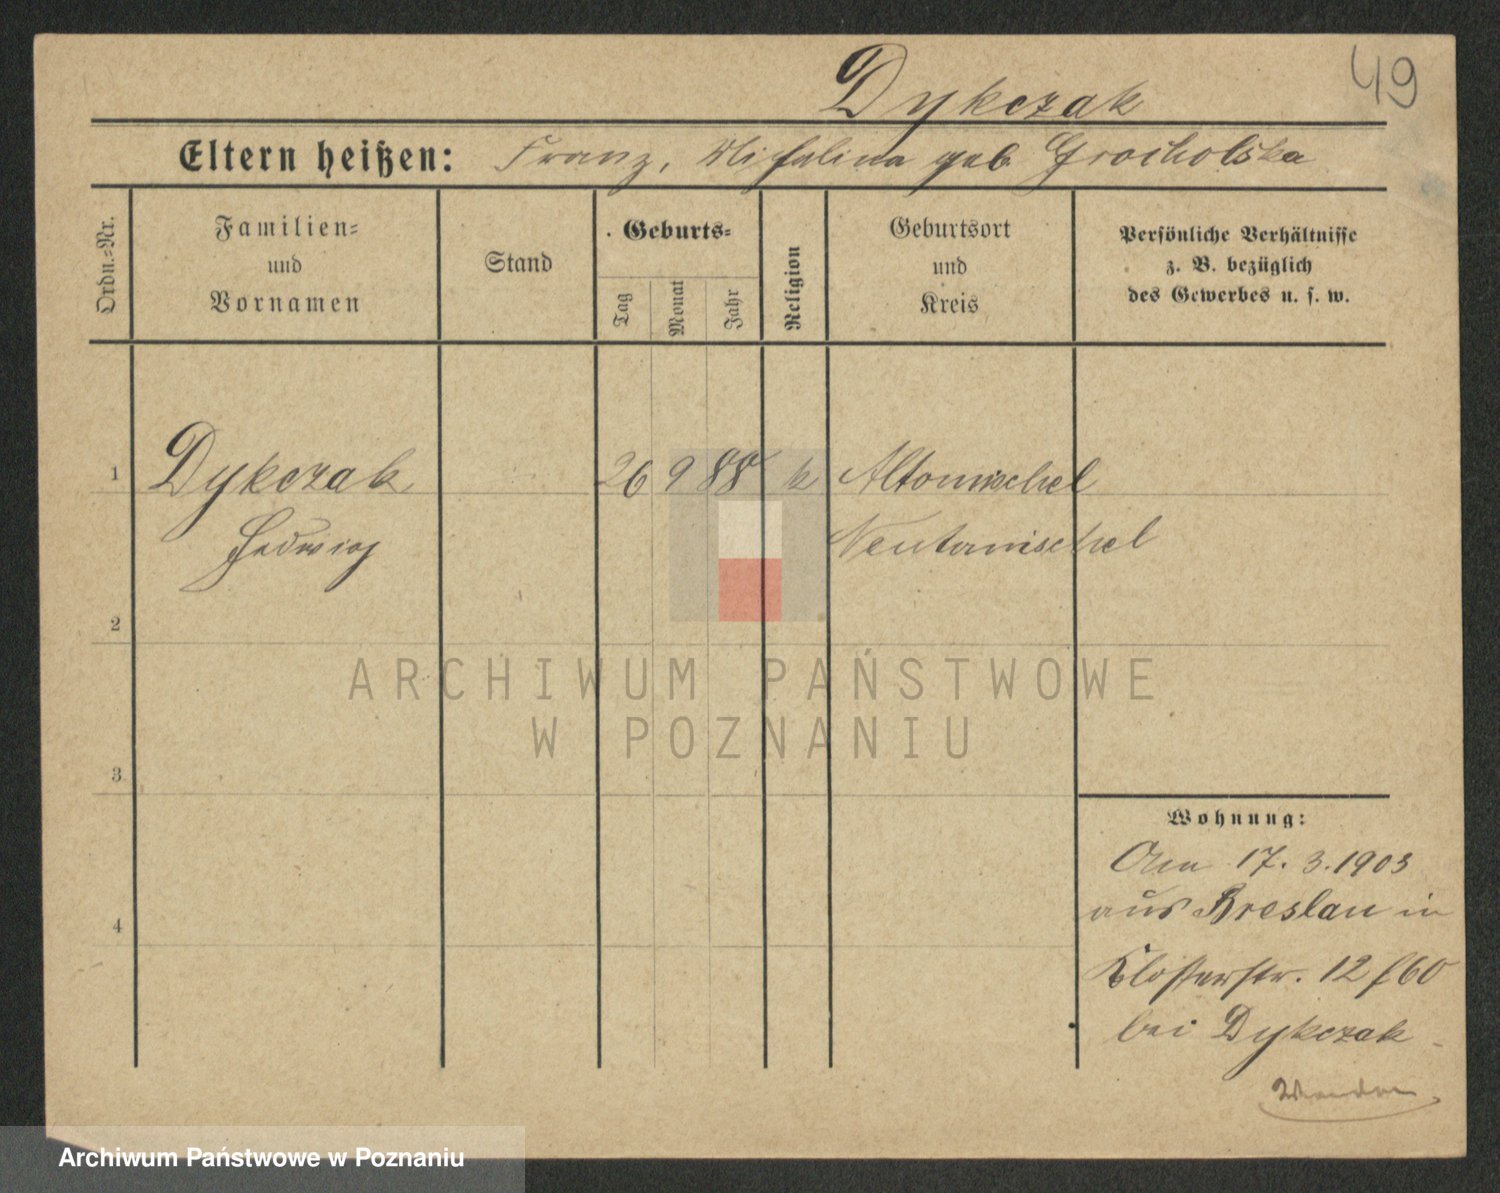 49
Dykczak
Eltern heißen: Franz, Michalina geb. Grocholska
Ordn.-Nr.
Familien-
und
Vornamen
Stand
Geburts-
Tag
Monat
Jahr
Religion
Geburtsort
und
Kreis
Persönliche Verhältnisse
z. B. bezüglich
des Gewerbes u. s. w.
1 Dykczak 26 9 88 k Altomischel
Hedwig Neutomischel
2
3
4
Wohnung:
Am 17. 3. 1903
aus Breslau in
Klosterstr. 12
bei Dykczak
ARCHIWUM PAŃSTWOWE
W POZNANIU
Archiwum Państwowe w Poznaniu